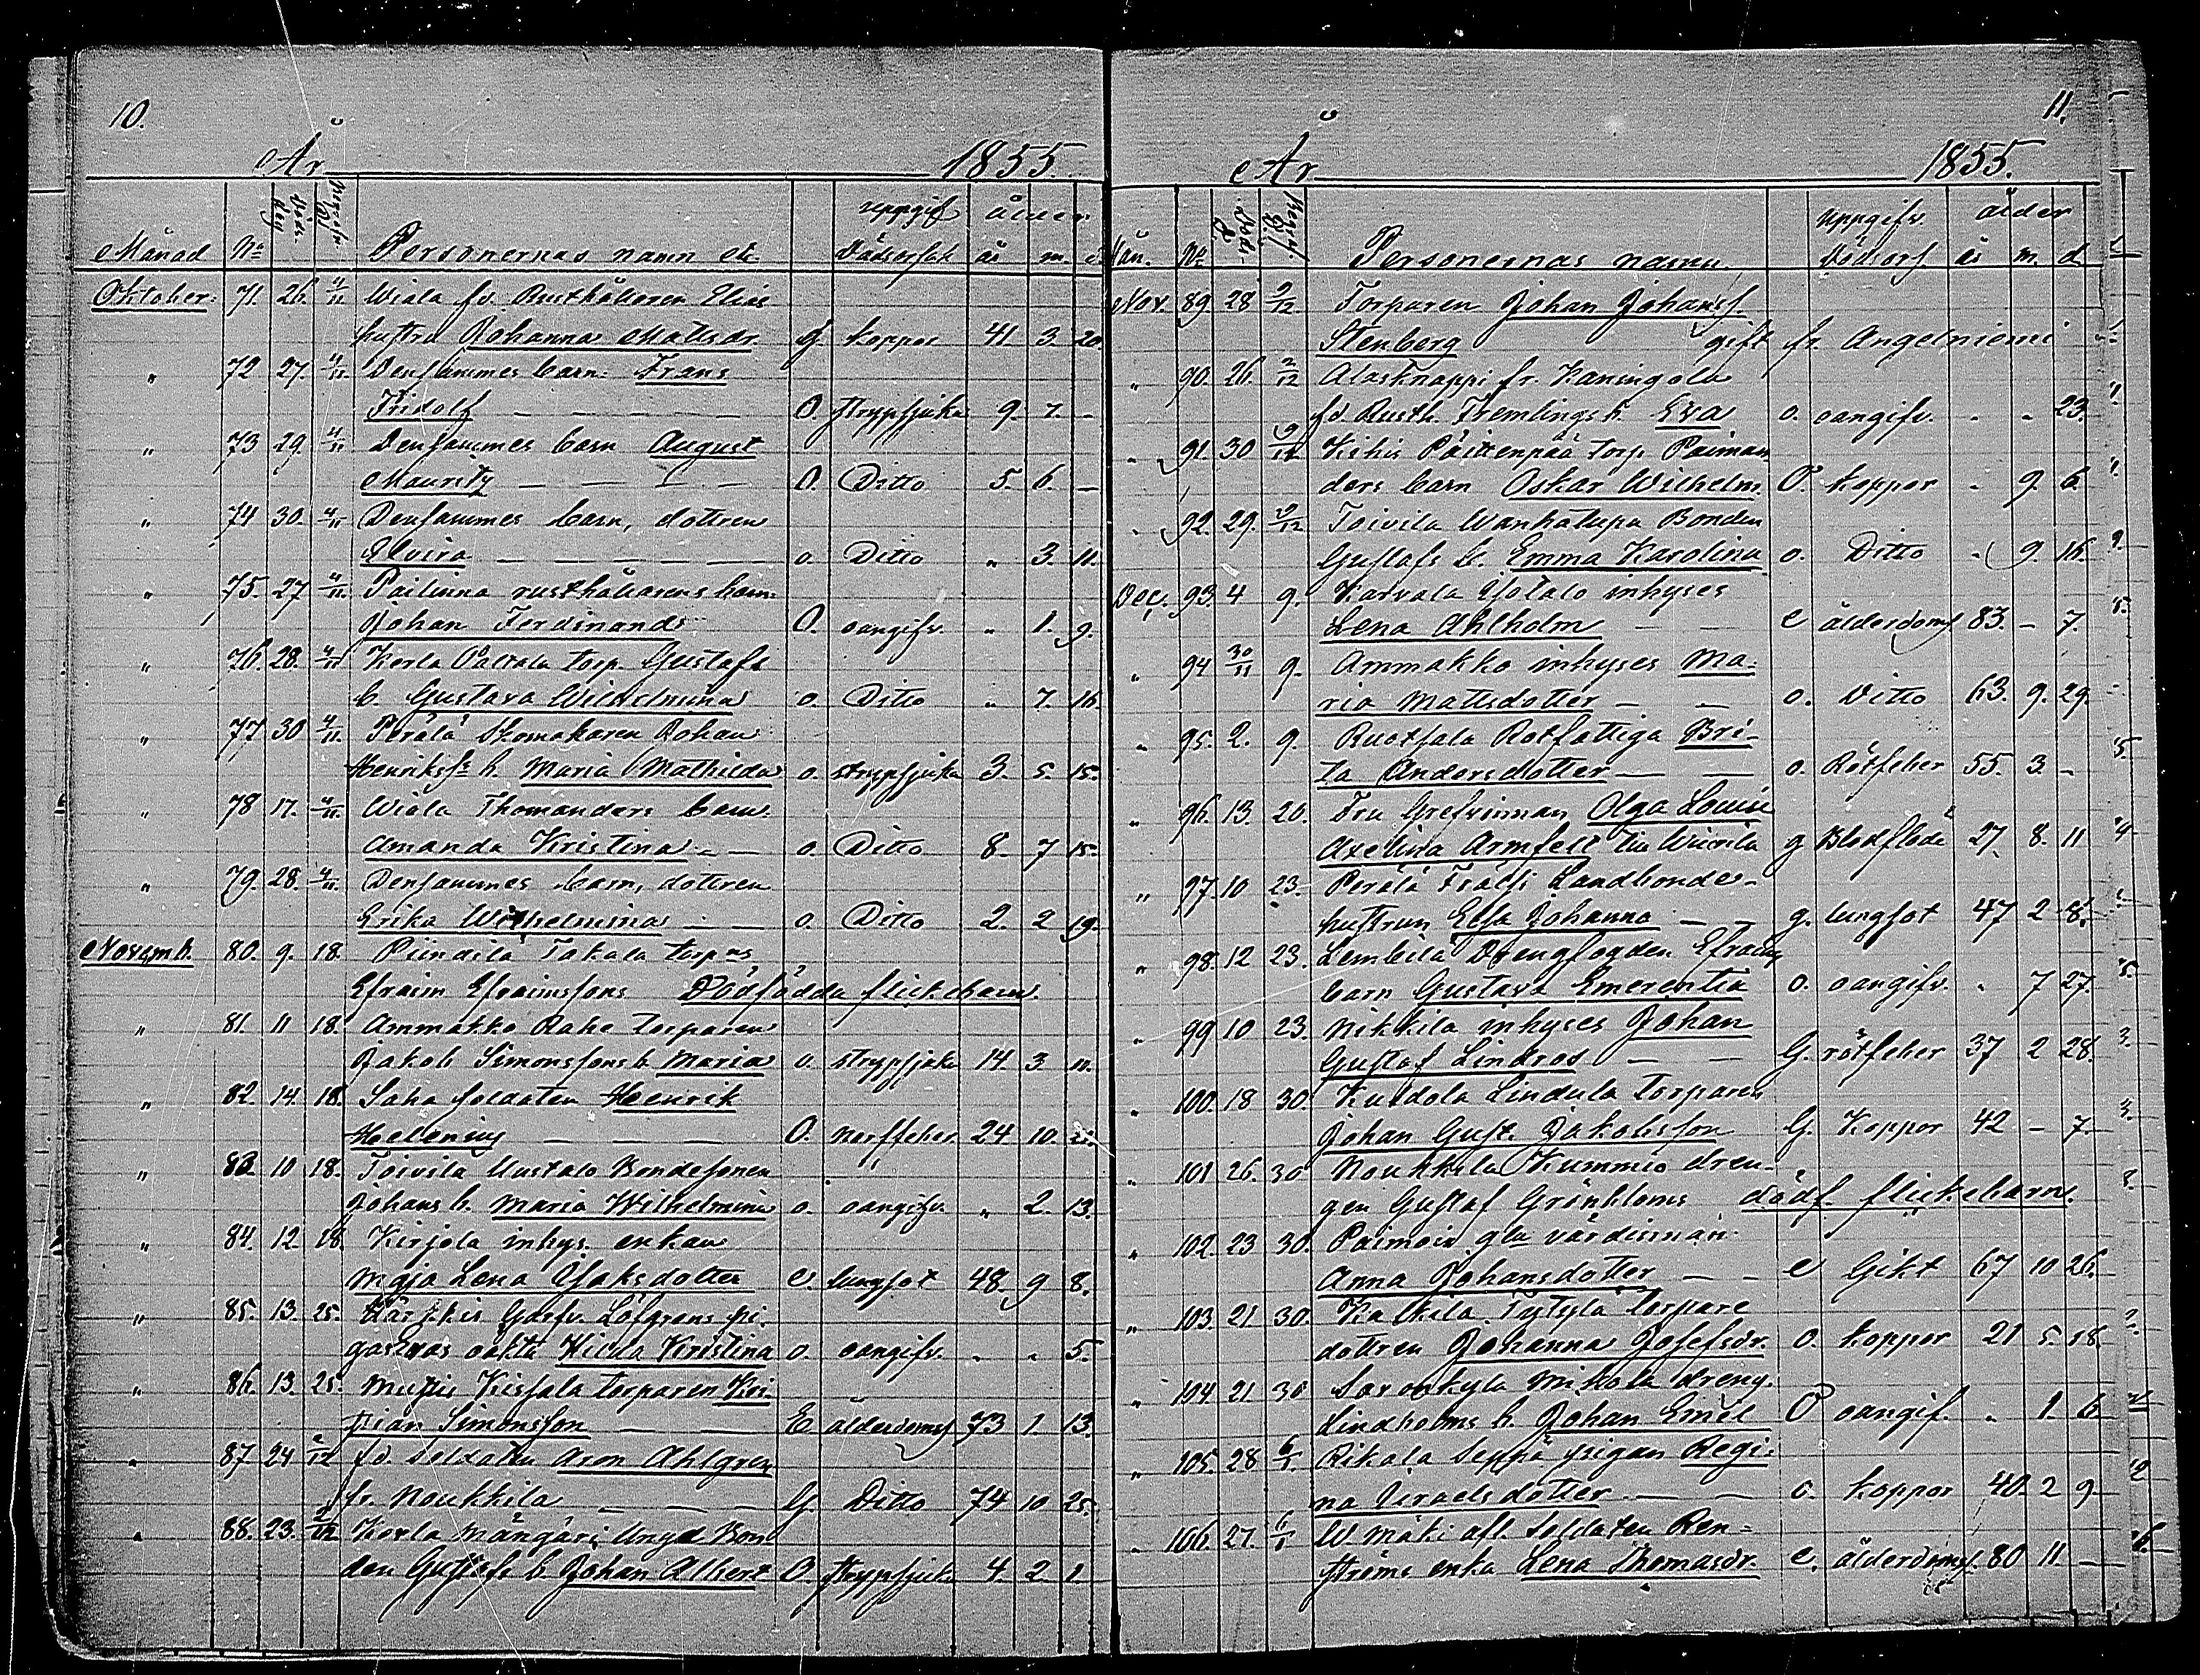 10.
År 1855.
Månad No Döds dag Begrafn. d. Personernas namn etc. uppgif. Dödsorsak ålder år m. d.
Oktober. 71. 26. 4/11 Wiala fd. Rusthållaren Elias
hustru Johanna Mattsdr. g koppor 41 3 20.
" 72 27. 4/11. Densammes barn: Frans
Fridolf — — — — O. strypsjuka 9. 7. -
" 73 29. 4/11 Densammes barn August
Mauritz — — — — O. Ditto 5. 6. -
" 74 30. 4/11 Densammes barn, dottren
Elvira — — — — — o. Ditto " 3. 11.
" 75. 27 4/11. Pailinna rusthållarens barn
Johan Ferdinand O. oangifv. " 1. 9.
" 76. 28. 4/11 Kerla Påltala torp. Gustafs
b. Gustava Wilhelmina o. Ditto " 7. 16.
" 77 30 4/11. Perälä Skomakaren Johan
Henrikss. b. Maria Mathilda o. strypsjuka 3. 5. 15.
" 78 17. 4/11. Wiala Thomanders barn
Amanda Kristina — o. Ditto 8. 7 15.
" 79. 28. 4/11. Densammes barn, dottren
Erika Wilhelmina — o. Ditto 2. 2 19.
Novemb. 80. 9. 18. Piindilä Takala torp:ns
Efraim Efraimssons Dödfödda flickebarn.
" 81. 11 18. Ammakko Rahe torparen
Jakob Simonssons b. Maria o. strypsjuka 14. 3. 11.
" 82. 14. 18. Saha soldaten Henrik
Helenius — — — O. nerffeber 24 10.
" 83. 10 18. Toivila Uustalo Bondesonen
Johans b. Maria Wilhelmina o. oangifv. " 2. 13.
" 84. 12. 18. Kirjola inhys. enkan
Maja Lena Isaksdotter e. lungsot 48. 9 8.
" 85. 13. 25. Garfv. Löfgrens pi-
gas Evas oäkta Hilda Kristina o. oangifv. " " 5.
" 86. 13. 25. Kissala torparen Kris-
tian Simonsson — — E ålderdomsf 73 1. 13.
" 87 24 2/12 fd. soldaten Aron Ahlgren
fr. Noukkila — — — G. Ditto 74 10 25.
" 88. 23. 2/12 Kerla Mångåri Bon-
den Gustafs b Johan Albert O. strypsjuka 4. 2. 1.
11.
År 1855.
Mån. No Döds- d. Begrf. d. Personernas namn. uppgifv. Dödsors. ålder år m. d.
Nov. 89 28 9/12 Torparen Johan Johanss.
Stenberg gift fr. Angelniemi
" 90. 26. 2/12 Alastnappi fr. Kaningola
fd. Rusth. Fremlings b. Eva o. oangifv. " " 23.
" 91 30 9/12 Kihis Päittenpää torp. Paiman-
ders barn Oskar Wilhelm. O. koppor " 9. 6.
" 92. 29. 9/12 Toivila Wanhatupa Bonden
Gustafs b. Emma Karolina o. Ditto " 9. 16.
Dec. 93. 4 9. Karvala Isotalo inhyses
Lena Ahlholm — — e ålderdomsf 83. - 7.
" 94 30/11 9. Ammakko inhyses Ma-
ria Mattsdotter — — o. Ditto 63. 9. 29.
" 95. 2. 9. Ruotsala Rotfattiga Bri-
ta Andersdotter — — o. Rötfeber 55. 3. -
" 96. 13. 20. Fru Grefvinnan Olga Louise
Axelina Armfelt Wiurila g Blodflöde 27. 8. 11
" 97. 10 23. Perälä Frälse Landbonde-
hustrun Elsa Johanna — g. lungsot 47 2 8.
" 98. 12 23. Lembilä Drengfogden Efraims
barn Gustava Emerentia o. oangifv. " 7 27.
" 99 10 23. Nikkilä inhyses Johan
Gustaf Lindros — — G. rötfeber 37 2 28.
" 100. 18 30. Kuddola Lindula torparen
Johan Gust. Jakobsson G. Koppor 42 - 7.
" 101 26. 30 Noukkila Kummio dren-
gen Gustaf Grönbloms dödf. flickebarn.
" 102. 23 30. Paimois gla värdinnan
Anna Johansdotter — — e Gikt 67 10 26.
" 103. 21 30. Kalkila Tytylä torpare
dottren Johanna Josefsdr. o. koppor 21 5. 18.
" 104 21 30 Savonkylä Mikola dreng.
Lindholms b. Johan Emil O oangif. " 1. 6.
" 105. 28 6/1. Rikala Seppä pigan Regi-
na Israelsdotter — — o. koppor 40. 2 9.
" 106. 27. 6/1 W. Mäki afl. Soldaten Ren-
ströms enka Lena Thomasdr. e. ålderdomsf. 80 11 -